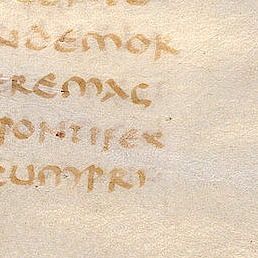 NDEMOR
EREMAC
PONTIFEX
CUMPRI